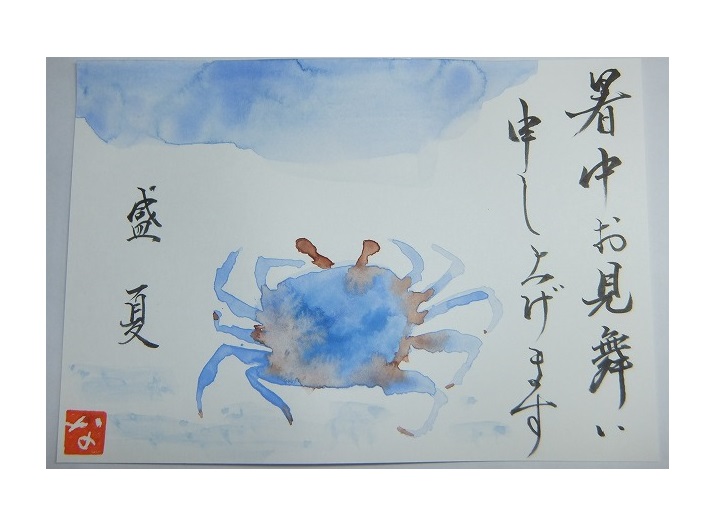 暑中お見舞い
申し上げます
盛夏
な